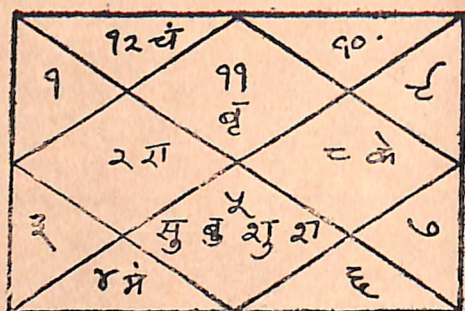 १२ चं
१०
१
११
बृ
९
२ रा
८ के
३
५
सु बु शु श
७
४ मं
६